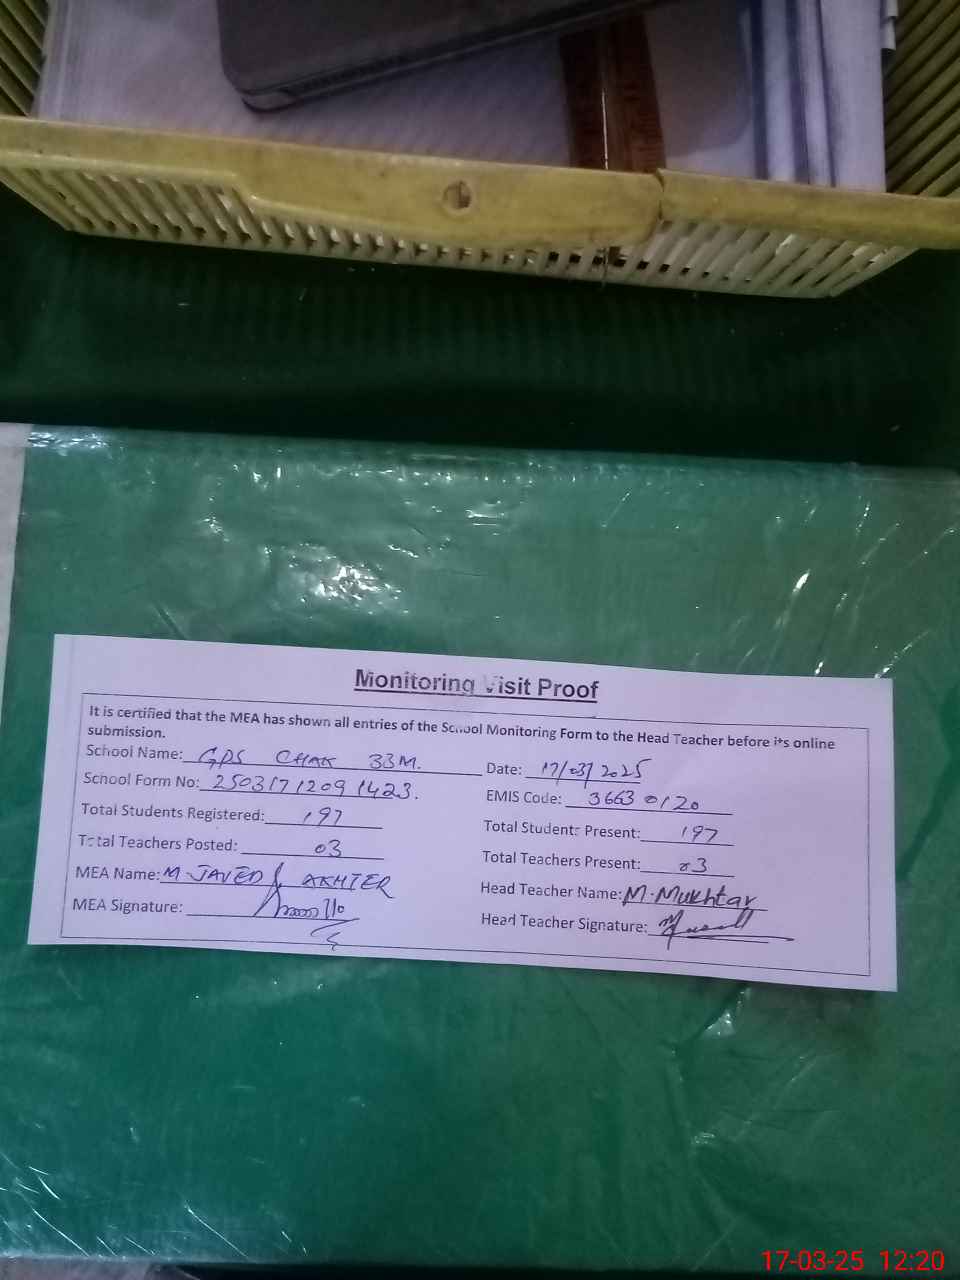 Monitoring Visit Proof
It is certified that the MEA has shown all entries of the School Monitoring Form to the Head Teacher before its online
submission.
School Name: GPS CHAK 33M.
Date: 17/03/2025
School Form No: 25031712091423.
EMIS Code: 36630120
Total Students Registered: 197
Total Students Present: 197
Total Teachers Posted: 03
Total Teachers Present: 03
MEA Name: M JAVED AKHTER
Head Teacher Name: M. Mukhtar
MEA Signature:
Head Teacher Signature:
17-03-25 12:20